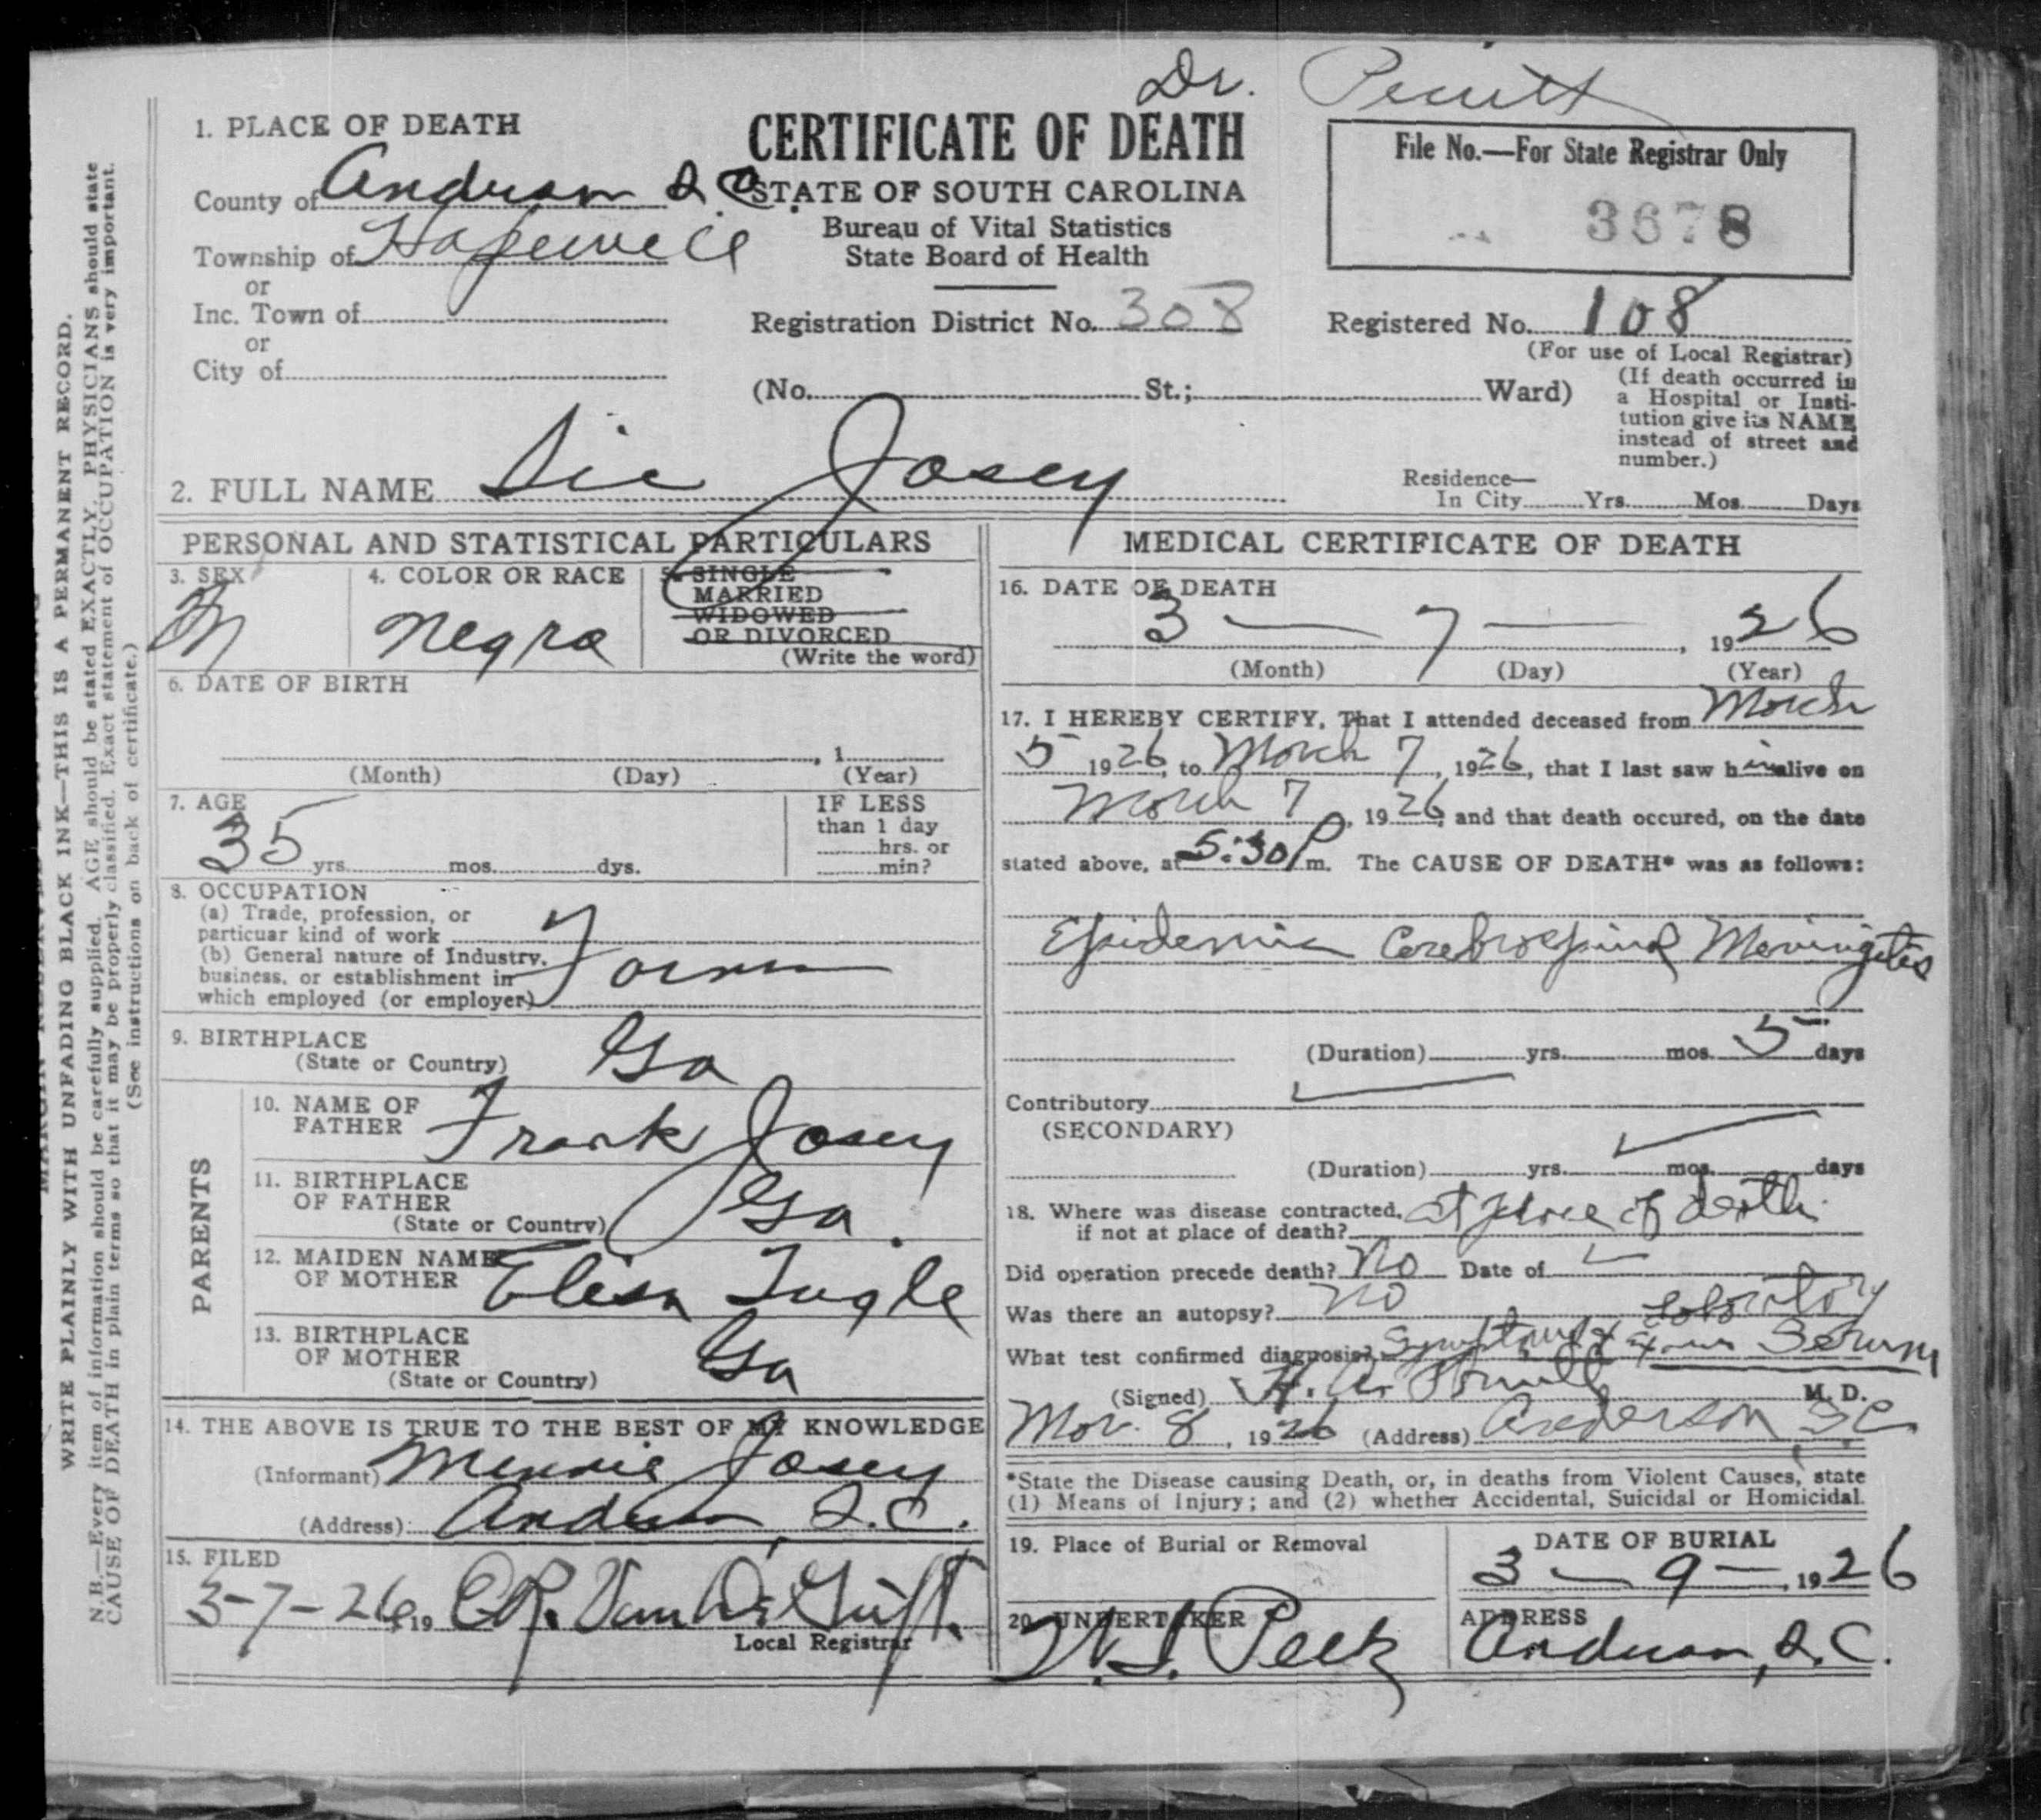 Dr.
1. PLACE OF DEATH
County of Anderson S. C.
Township of Hopewell
or
Inc. Town of
or
City of
CERTIFICATE OF DEATH
STATE OF SOUTH CAROLINA
Bureau of Vital Statistics
State Board of Health
Registration District No. 308
File No.—For State Registrar Only
3678
Registered No. 108
(For use of Local Registrar)
(No. St.; Ward)
(If death occurred in
a Hospital or Insti-
tution give its NAME
instead of street and
number.)
2. FULL NAME Sie Josey
Residence—
In City Yrs. Mos. Days
PERSONAL AND STATISTICAL PARTICULARS
3. SEX
M
4. COLOR OR RACE
Negro
5. SINGLE
MARRIED
WIDOWED
OR DIVORCED
(Write the word)
6. DATE OF BIRTH
, 1
(Month) (Day) (Year)
7. AGE
35 yrs. mos. dys.
IF LESS
than 1 day
hrs. or
min?
8. OCCUPATION
(a) Trade, profession, or
particuar kind of work
(b) General nature of Industry,
business, or establishment in
which employed (or employer)
Farm
9. BIRTHPLACE
(State or Country) Ga
PARENTS
10. NAME OF
FATHER Frank Josey
11. BIRTHPLACE
OF FATHER
(State or Country) Ga.
12. MAIDEN NAME
OF MOTHER Elisa Tugle
13. BIRTHPLACE
OF MOTHER
(State or Country) Ga
14. THE ABOVE IS TRUE TO THE BEST OF MY KNOWLEDGE
(Informant) Minnie Josey
(Address) Anderson, S.C.
15. FILED
3-7-26, 19
Local Registrar
MEDICAL CERTIFICATE OF DEATH
16. DATE OF DEATH
3 — 7 — , 1926
(Month) (Day) (Year)
17. I HEREBY CERTIFY, That I attended deceased from March
5 1926, to March 7, 1926, that I last saw him alive on
March 7, 1926, and that death occured, on the date
stated above, at 5:30 P m. The CAUSE OF DEATH* was as follows:
Epidemic Cerebrospinal Meningitis
(Duration) yrs. mos. 5 days
Contributory
(SECONDARY)
(Duration) yrs. mos. days
18. Where was disease contracted, at place of death
if not at place of death?
Did operation precede death? No Date of
Was there an autopsy? No
Laboratory
What test confirmed diagnosis? Symptoms & Serum
(Signed) M. D.
Mar. 8, 1926 (Address) Anderson, S.C.
*State the Disease causing Death, or, in deaths from Violent Causes, state
(1) Means of Injury; and (2) whether Accidental, Suicidal or Homicidal.
19. Place of Burial or Removal
DATE OF BURIAL
3 — 9 —, 1926
20. UNDERTAKER
Peek
ADDRESS
Anderson, S.C.
WRITE PLAINLY WITH UNFADING BLACK INK—THIS IS A PERMANENT RECORD.
N.B.—Every item of information should be carefully supplied. AGE should be stated EXACTLY. PHYSICIANS should state
CAUSE OF DEATH in plain terms so that it may be properly classified. Exact statement of OCCUPATION is very important.
(See instructions on back of certificate.)